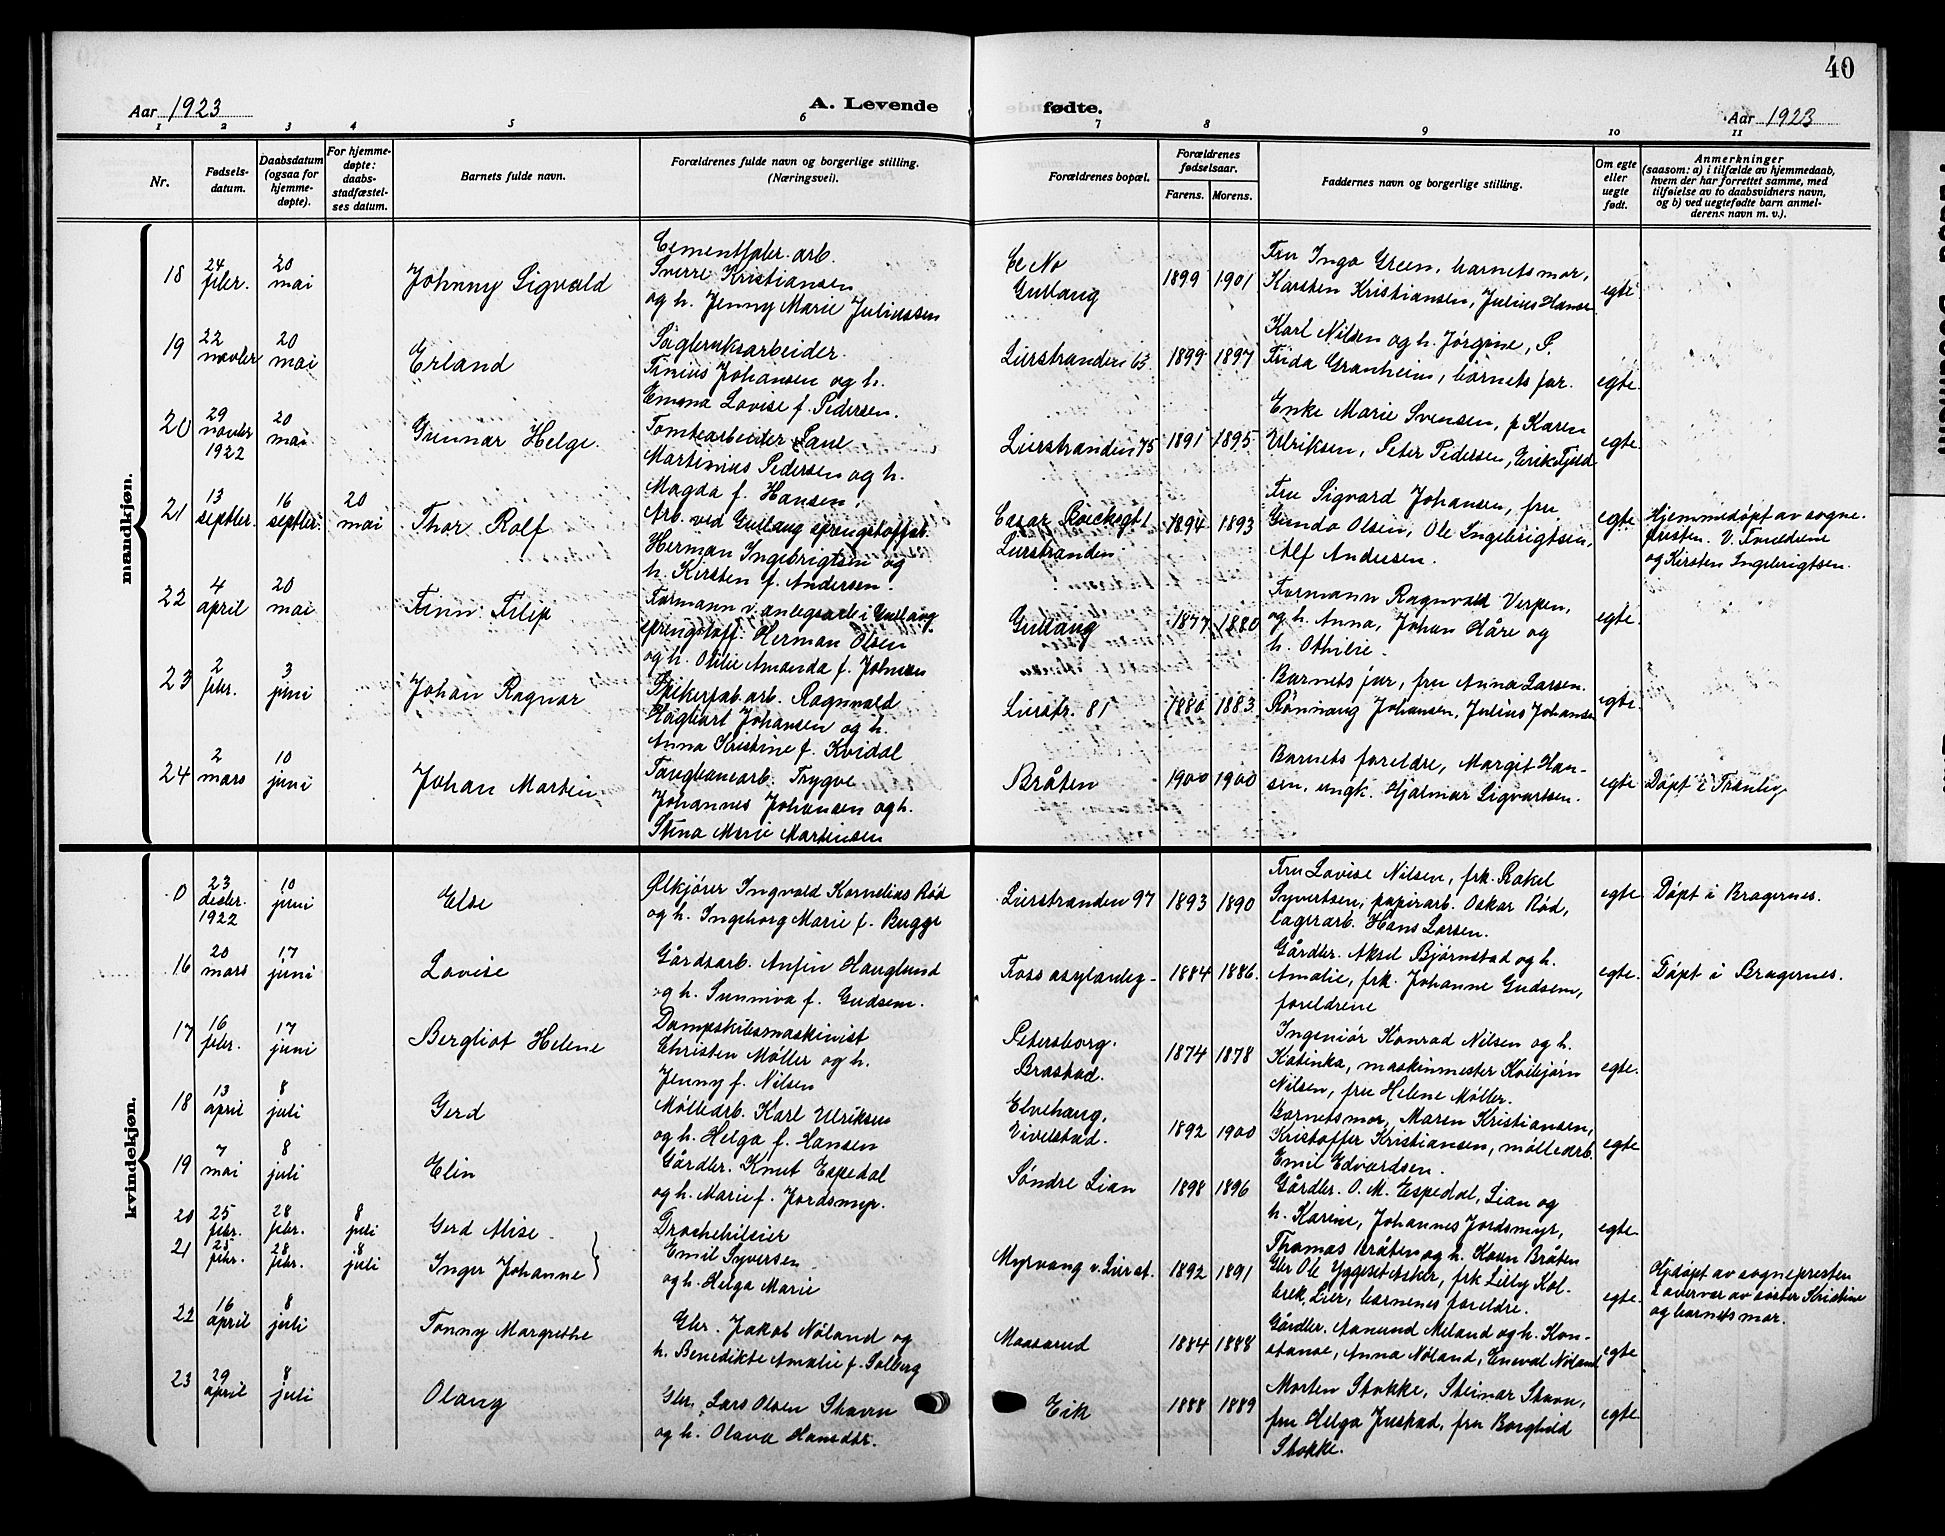 40
Aar 1923
A. Levende
fødte.
Aar 1923
1 2 3 4 5 6 7 8 9 10 11
Nr.
Fødsels-
datum.
Daabsdatum
(ogsaa for
hjemme-
døpte).
For hjemme-
døpte:
daabs-
stadfæstel-
ses datum.
Barnets fulde navn.
Forældrenes fulde navn og borgerlige stilling.
(Næringsvei).
Forældrenes bopæl.
Forældrenes
fødselsaar.
Farens. Morens.
Faddernes navn og borgerlige stilling.
Om egte
eller
uegte
født.
Anmerkninger
(saasom: a) i tilfælde av hjemmedaab,
hvem der har forrettet samme, med
tilføielse av to daabsvidners navn,
og b) ved uegtefødte barn anmel-
derens navn m. v.).
mandkjøn.
18
24
febr.
20
mai
Johnny Sigvald
Cementstøber. arb.
Sverre Kristiansen
og h. Jenny Marie Juliussen
Gullaug
1899 1901
Fru Inga Green, barnets mor,
Karsten Kristiansen, Julius Hanse
egte
19
22
novbr
20
mai
Erland
Teglverksarbeider
Tinius Johansen og h.
Emma Lovise f. Pedersen.
Lierstranden 63
1899 1897
Karl Nilsen og h. Jørgine, S.
Frida Granheim, barnets far.
egte.
20
29
novbr
1922
20
mai
Gunnar Helge
Tomtearbeider Paul
Martinius Pedersen og h.
Magda f. Hansen.
Lierstranden 75
1891 1895
Enke Marie Svensen, p Karen
Ulriksen, Peter Pedersen, Erik Fjeld
egte
21
13
septbr.
16
septbr.
20
mai
Thor Rolf
Arb. ved Gullaug sprengstoffst.
Herman Ingebrigtsen og
h. Kirsten f. Andersen.
Lierstranden
1894 1893
Fru Sigvard Johansen, fru
Gunda Olsen, Ole Ingebrigtsen,
Alf Andersen.
egte
Hjemmedøpt av sogne-
presten. V. Foreldrene
og Kirsten Ingebrigtsen.
22
4
april
20
mai
Finn Filip
Formann v. anlegsarb i Gullaug
sprengstoff. Herman Olsen
og h. Otilie Amanda f. Johnsen
Gullaug
1877 1880
Formann Ragnvald Verpen,
og h. Anna, Johan Håre og
h. Othilie.
egte.
23
2
febr.
3
juni
Johan Ragnar
Spikerfab. arb. Ragnvald
Hagbart Johansen og h.
Anna Kristine f. Kvidal
Lierstr. 81
1880 1883
Barnets far, fru Anna Larsen.
Rønnaug Johansen, Julius Johanse
egte.
24
2
mars
10
juni
Johan Martin
Taugbanearb. Trygve
Johannes Johansen og h.
Stina Marie Martinsen
Bråten
1900 1900
Barnets foreldre, Margit Han-
sen, ungk. Hjalmar Sigvartsen.
egte
Døpt i Tranby
kvindekjøn.
0
23
desbr.
1922
10
juni
Else
Ølkjører Ingvald Kornelius Rød
og h. Ingeborg Marie f. Bugge
Lierstranden 97
1893 1890
Fru Lovise Nilsen, frk. Rakel
Syvertsen, papirarb. Oskar Rød,
lagerarb. Hans Larsen.
egte
Døpt i Bragernes.
16
20
mars
17
juni
Lovise
Gårdsarb. Anfin Hauglund
og h. Sunniva f. Gudsem.
Foss asylanleg
1884 1886.
Gårdbr. Aksel Bjørnstad og h.
Amalie, frk. Johanne Gudsem,
foreldrene
egte.
Døpt i Bragernes.
17
16
febr.
17
juni
Bergliot Helene
Dampskibsmaskinist
Christen Møller og h.
Jenny f. Nilsen
Petersborg.
Brastad.
1874 1878
Ingeniør Konrad Nilsen og h.
Katinka, maskinmester Kolbjørn
Nilsen, fru Helene Møller.
egte.
18
13
april
8
juli
Gerd
Møllearb. Karl Ulriksen
og h. Helga f. Hansen
Elvehaug,
Eivelstad.
1892 1900
Barnets mor, Maren Kristiansen,
Kristoffer Kristiansen, møllearb.
Emil Edvardsen.
egte
19
7
mai
8
juli
Elin
Gårdbr. Knut Espedal
og h. Marie f. Jordsmyr.
Søndre Lian
1898 1896
Gårdbr. O. M. Espedal, Lian og
h. Karine, Johannes Jordsmyr,
Thomas Bråten og h. Karen Bråten
egte
20
25
febr.
28
febr.
8
juli
Gerd Alise
21
25
febr.
28
febr.
8
juli
Inger Johanne
Droskebileier
Emil Syversen
og h. Helga Marie
Myrvang v. Lierst.
1892 1891
Gbr Ole Yggeset Asker, frk Lilly Kol-
brek, Lier, barnenes foreldre.
egte
Hjdøpt av sognepresten
i overvær av søster Kristine
og barnets mor.
22
16
april
8
juli
Tonny Margrethe
Gbr. Jakob Nøland og
h. Benedikte Amalie f. Solberg
Maasarud
1884 1888
Gårdbr. Aanund Meland og h. Kon-
stanse, Anna Nøland, Enevald Nøland
egte
23
29
april
8
juli
Olaug
Gbr. Lars Olsen Stavn
og h. Olava Hansdtr.
Eik
1888 1889
Morten Stokke, Steinar Stavn,
fru Helga Justad, fru Borghild
Stokke.
egte